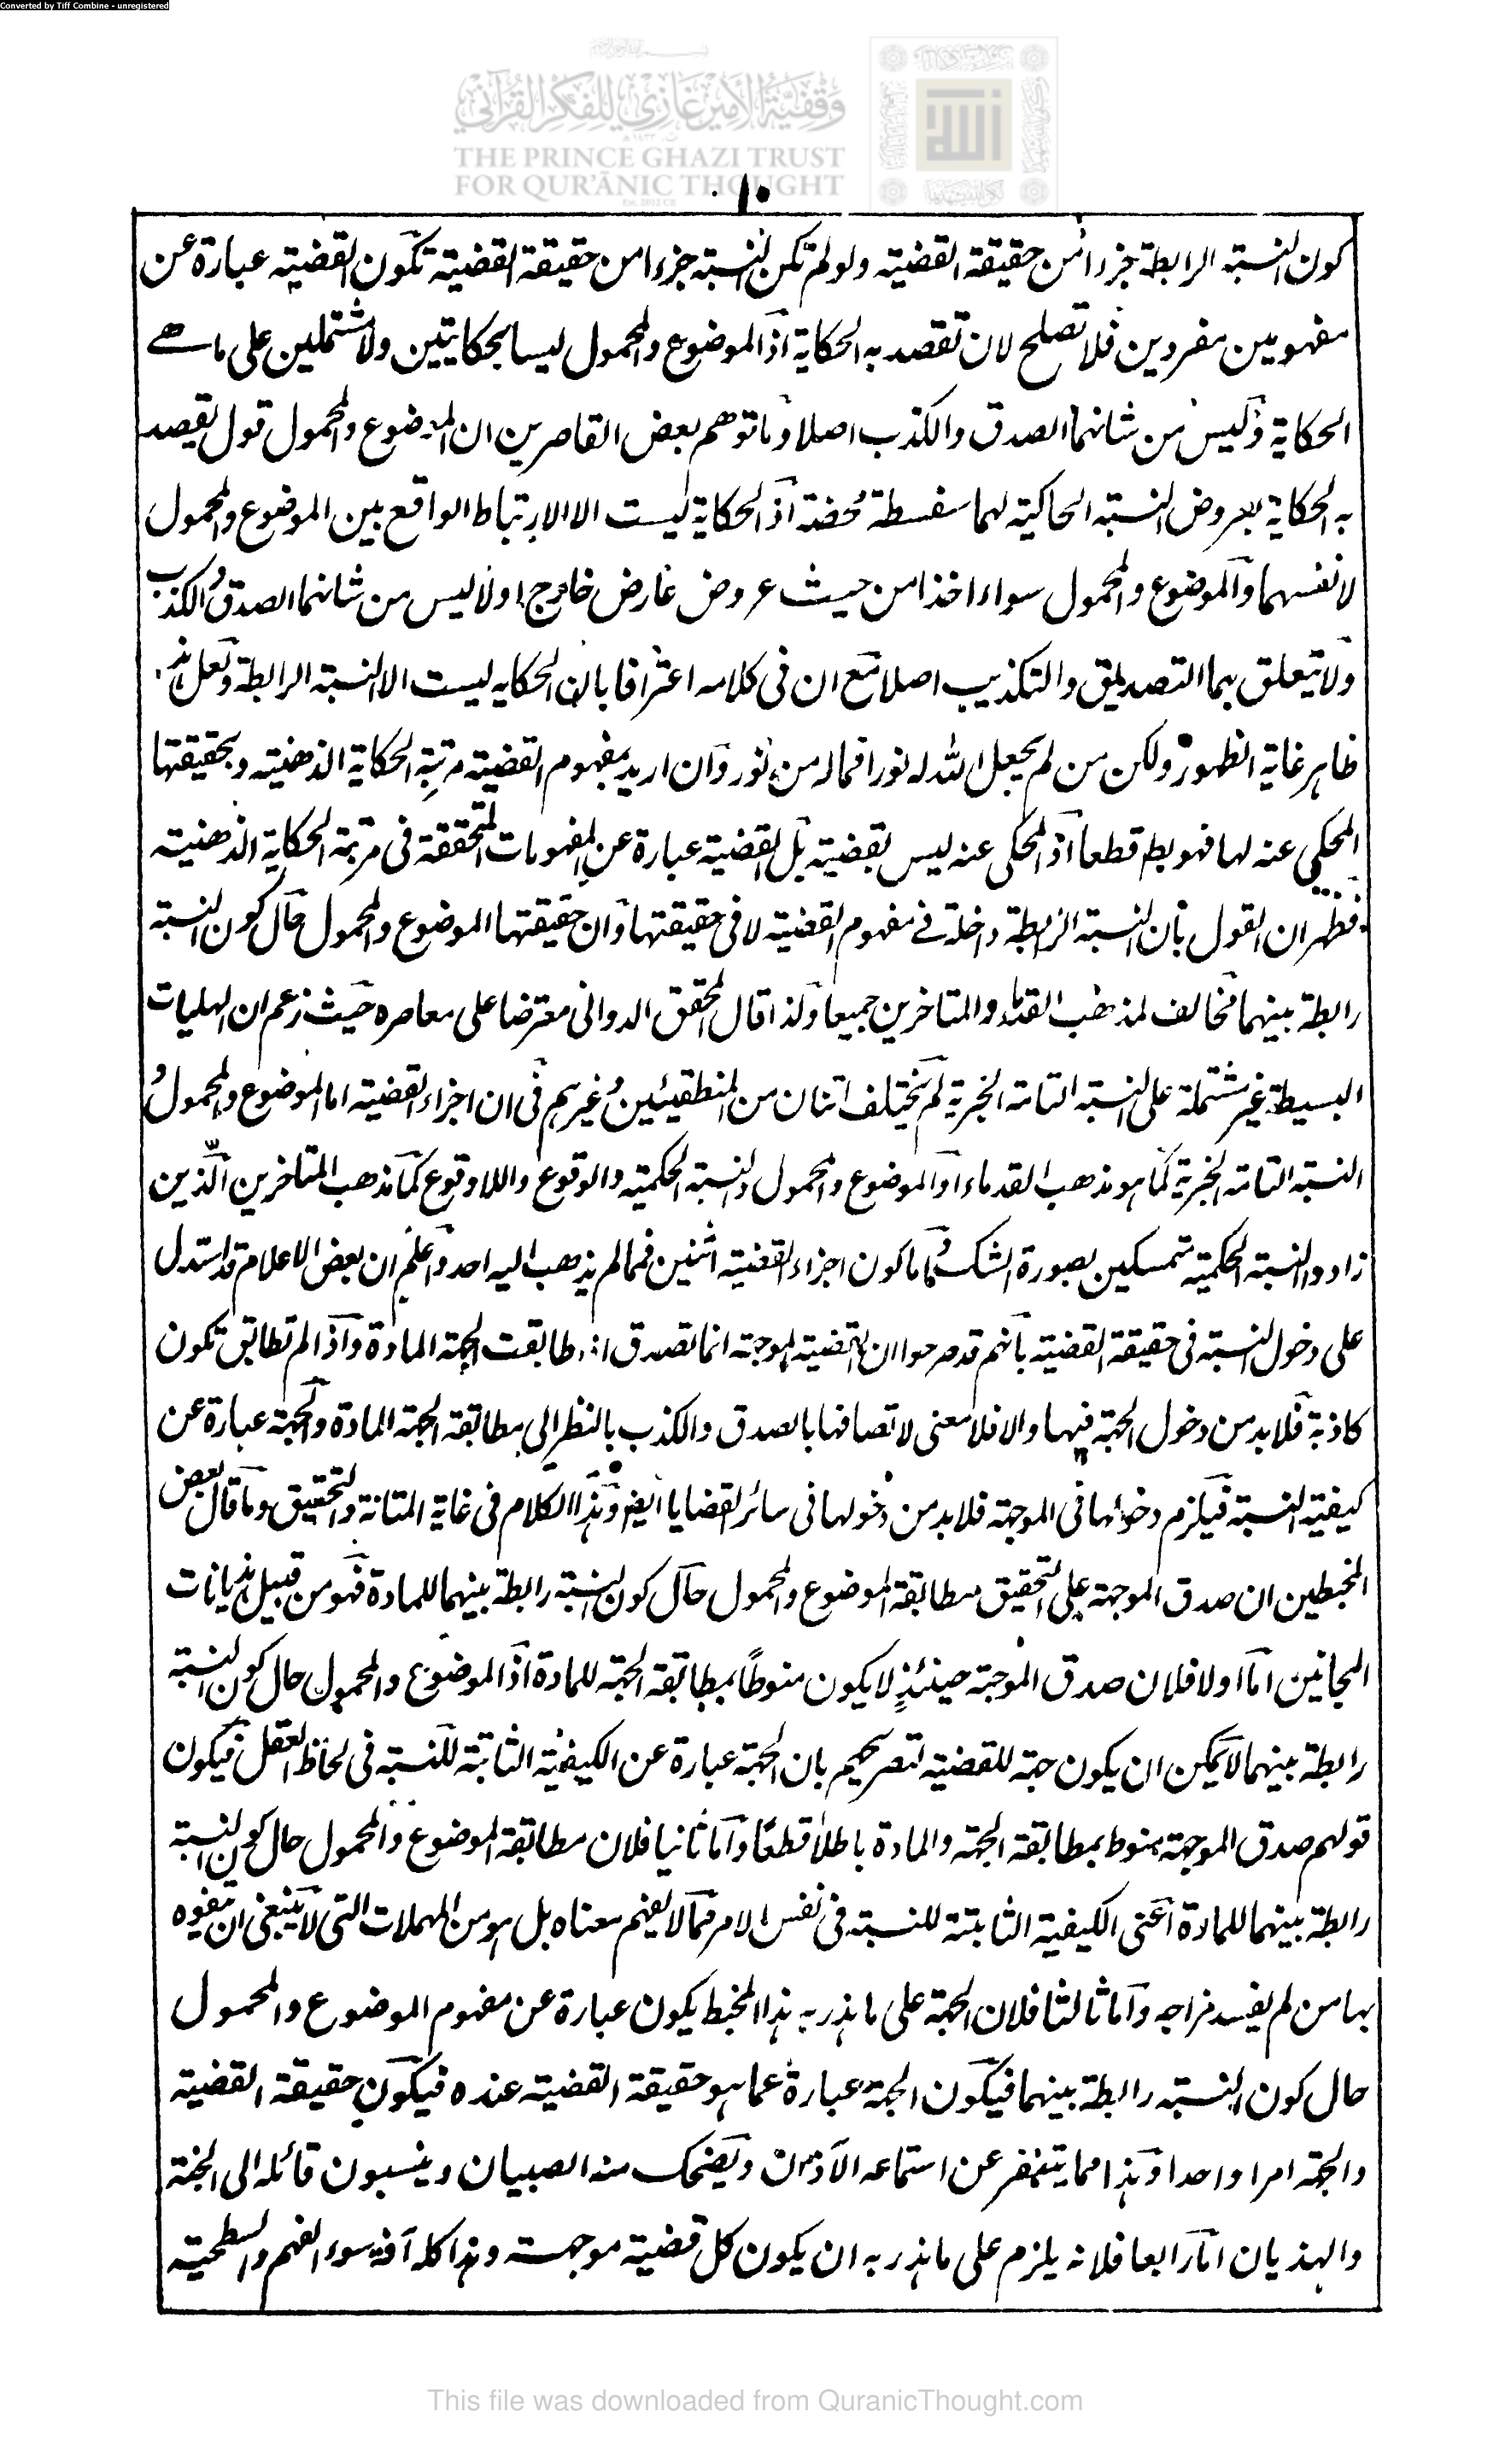 Converted by Tiff Combine - unregistered
وقفية الأمير غازي للفكر القرآني
THE PRINCE GHAZI TRUST
FOR QUR'ĀNIC THOUGHT
١٠
كون النسبة الرابطة جزءا من حقيقة القضية ولو لم تكن النسبة جزءا من حقيقة القضية تكون القضية عبارة عن
مفهومين مفردين فلا تصلح لان تقصد به الحكاية اذ الموضوع والمحمول ليسا بحكايتين ولا مشتملين على ما هے
الحكاية وليس من شانهما الصدق والكذب اصلا وما توهم بعض القاصرين ان الموضوع والمحمول قول يقصد
به الحكاية بعروض النسبة الحاكية لهما سفسطة محضة اذ الحكاية ليست الا الارتباط الواقع بين الموضوع والمحمول
لا نفسهما والموضوع والمحمول سواء اخذا من حيث عروض عارض خارج او لا ليس من شانهما الصدق والكذب
ولا يتعلق بهما التصديق والتكذيب اصلا مع ان فى كلامه اعترافا بان الحكايه ليست الا النسبة الرابطة ولعل هذا
ظاهر غاية الظهور ولكن من لم يجعل الله له نورا فما له من نور وان اريد بمفهوم القضية مرتبة الحكاية الذهنية وبحقيقتها
المحكي عنه لها فهو بط قطعا اذ المحكى عنه ليس بقضية بل القضية عبارة عن المفهومات المتحققة فى مرتبة الحكاية الذهنية
فظهر ان القول بان النسبة الرابطة داخلة فے مفهوم القضية لا فى حقيقتها وان حقيقتها الموضوع والمحمول حال كون النسبة
رابطة بينهما مخالف لمذهب القدماء والمتاخرين جميعا ولذا قال المحقق الدوانى معترضا على معاصره حيث زعم ان الهليات
البسيطة غير مشتملة على النسبة التامة الخبرية لم يختلف اثنان من المنطقيين وغيرهم فى ان اجزاء القضية اما الموضوع والمحمول و
النسبة التامة الخبرية كما هو مذهب القدماء او الموضوع والمحمول والنسبة الحكمية والوقوع واللاوقوع كما مذهب المتاخرين الذين
زادوا النسبة الحكمية متمسكين بصورة الشك واما كون اجزاء القضية اثنين فمما لم يذهب اليه احد واعلم ان بعض الاعلام قد استدل
على دخول النسبة فى حقيقة القضية بانهم قد صرحوا ان القضية الموجهة انما تصدق اذا طابقت الجهة المادة واذا لم تطابق تكون
كاذبة فلا بد من دخول الجهة فيها والا فلا معنى لاتصافها بالصدق والكذب بالنظر الى مطابقة الجهة المادة والجهة عبارة عن
كيفية النسبة فيلزم دخولها فى الموجهة فلا بد من دخولها فى سائر القضايا ايض وهذا الكلام فى غاية المتانة والتحقيق وما قال بعض
المخبطين ان صدق الموجهة على التحقيق مطابقة الموضوع والمحمول حال كون النسبة رابطة بينهما للمادة فهو من قبيل هذيانات
المجانين اما اولا فلان صدق الموجهة حينئذٍ لا يكون منوطًا بمطابقة الجهة للمادة اذ الموضوع والمحمول حال كون النسبة
رابطة بينهما لا يمكن ان يكون جهة للقضية لتصريحهم بان الجهة عبارة عن الكيفية الثابتة للنسبة فى لحاظ العقل فيكون
قولهم صدق الموجهة منوط بمطابقة الجهة والمادة باطلا قطعا واما ثانيا فلان مطابقة الموضوع والمحمول حال كون النسبة
رابطة بينهما للمادة اعنى الكيفية الثابتة للنسبة فى نفس الامر مما لا يفهم معناه بل هو من المهملات التى لا ينبغى ان يتفوه
بها من لم يفسد مزاجه واما ثالثا فلان الجهة على ما هذر به هذا المخبط يكون عبارة عن مفهوم الموضوع والمحمول
حال كون النسبة رابطة بينهما فيكون الجهة عبارة عما هو حقيقة القضية عنده فيكون حقيقة القضية
والجهة امرا واحدا وهذا مما يتنفر عن استماعه الآذان ويضحك منه الصبيان وينسبون قائله الى الجنة
والهذيان اما رابعا فلانه يلزم على ما هذر به ان يكون كل قضية موجهة وهذا كله آفة سوء الفهم والسطحية
This file was downloaded from QuranicThought.com